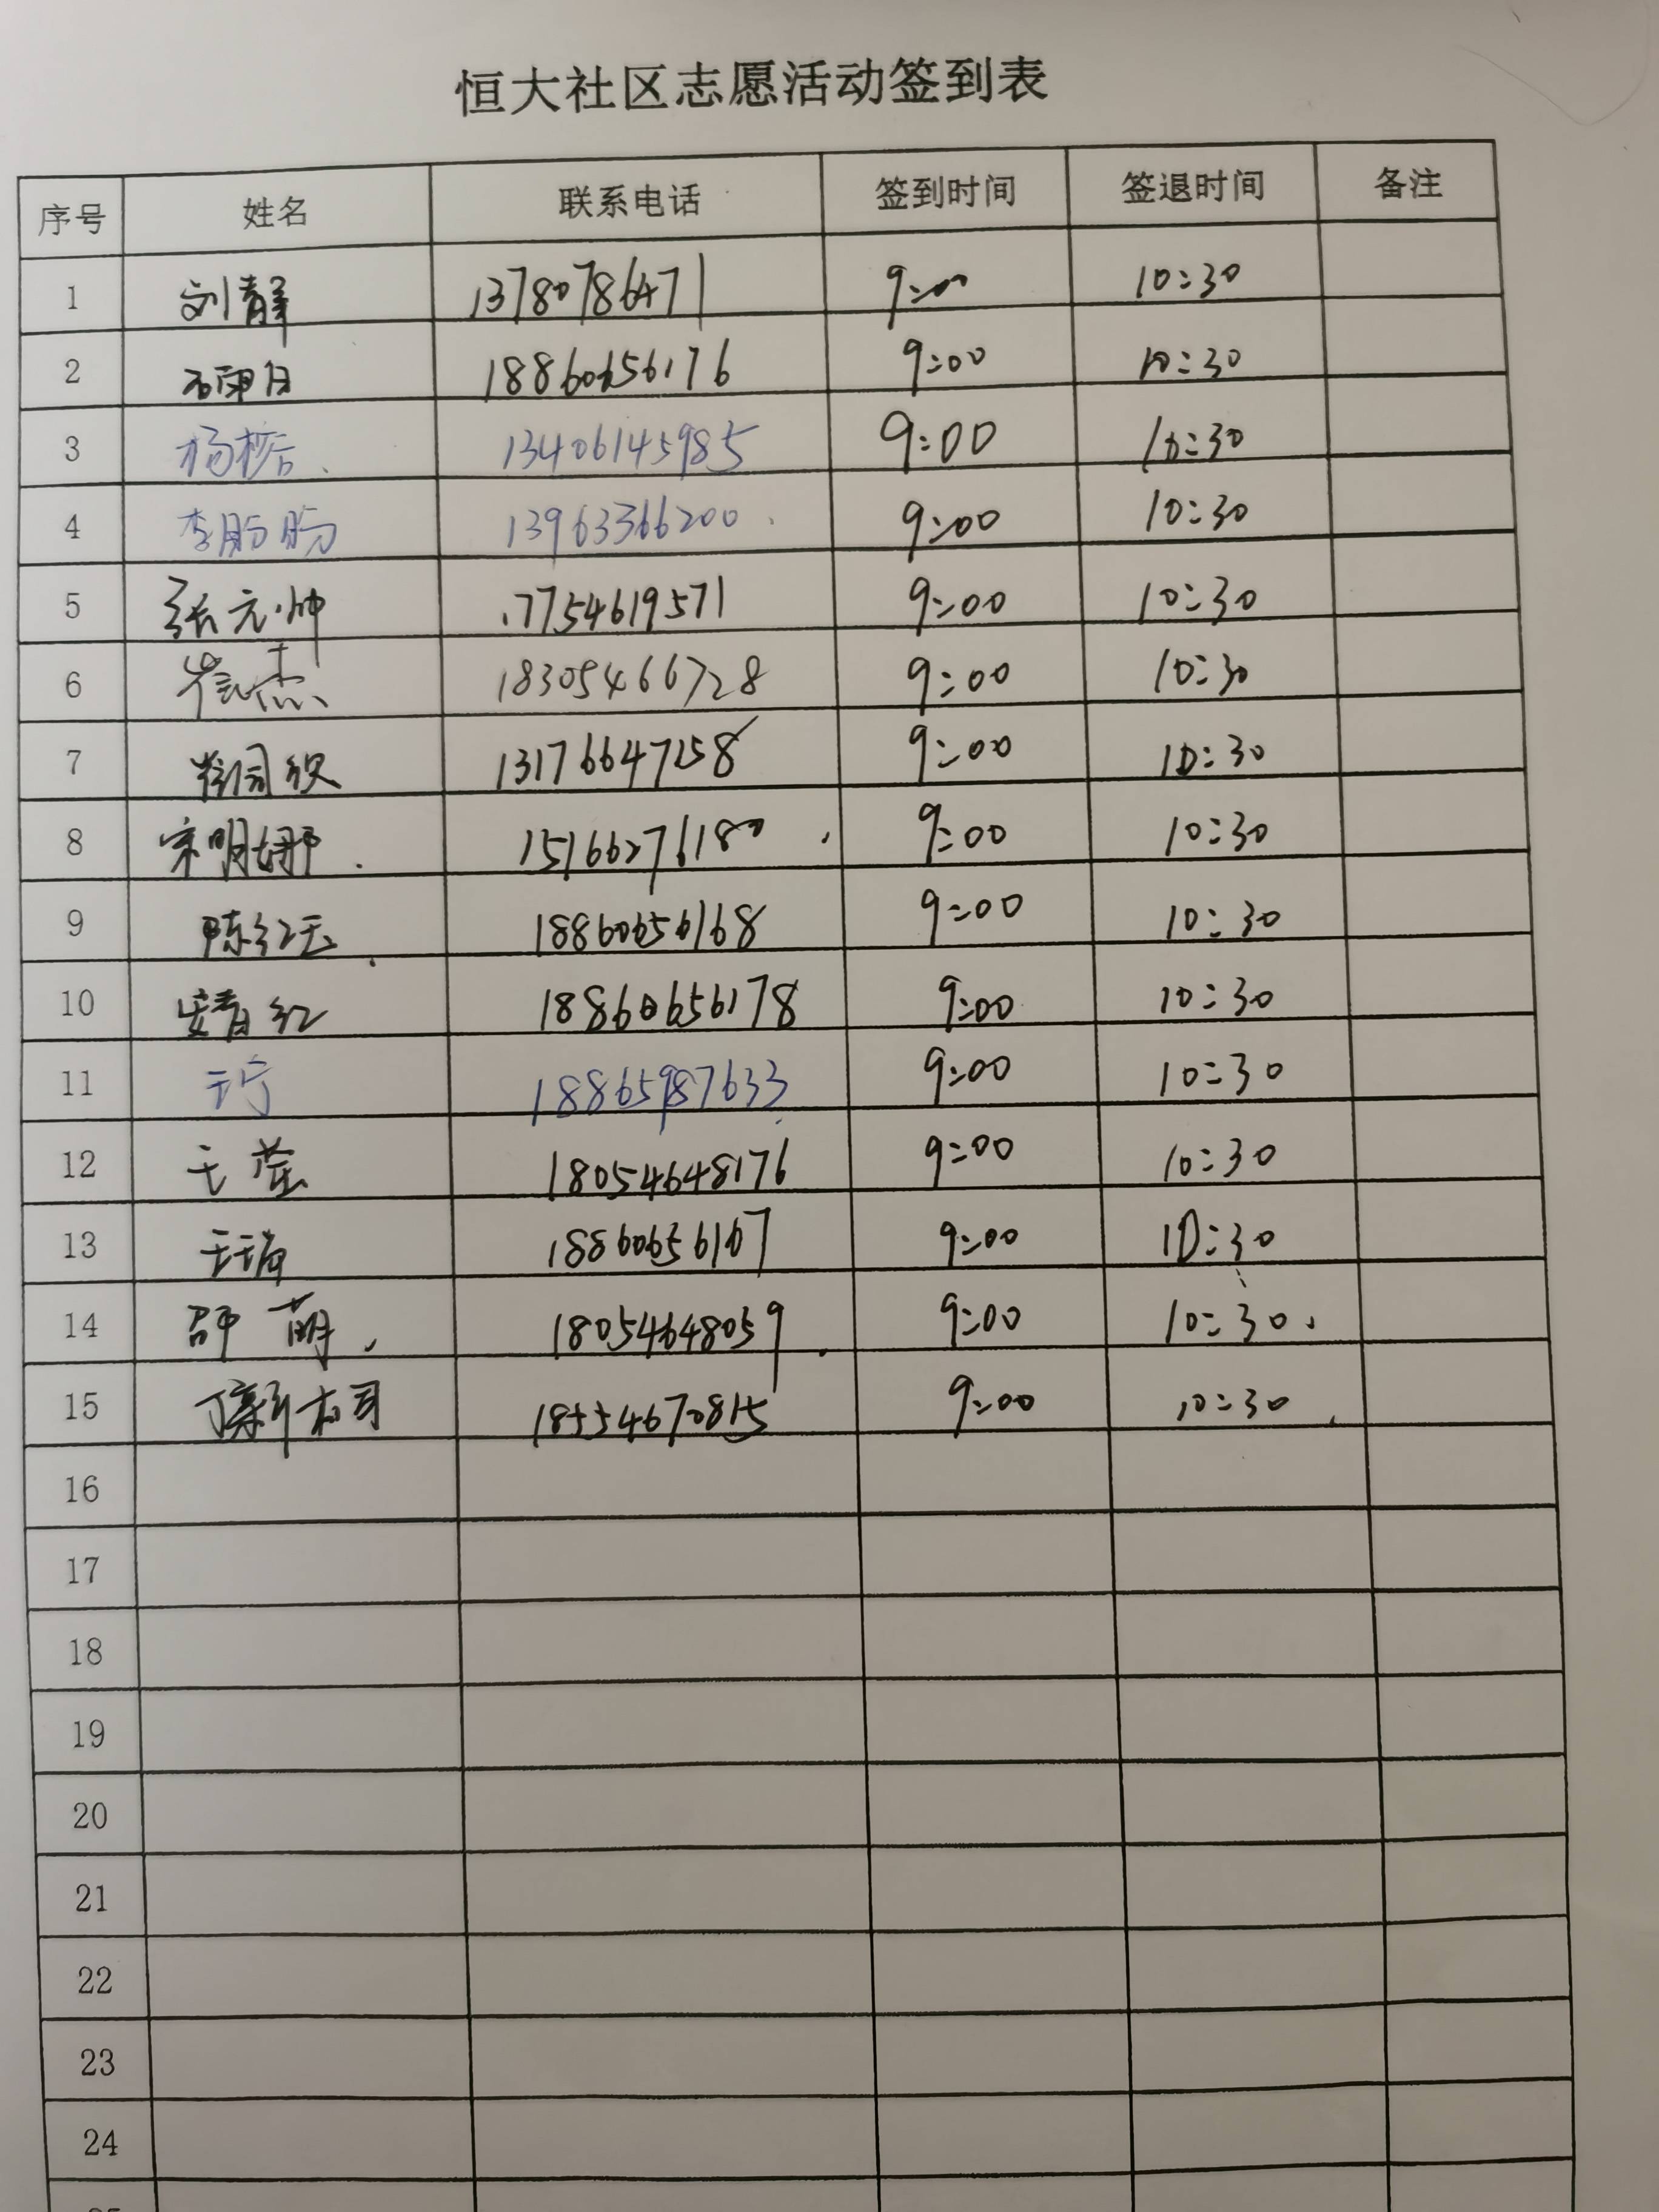 恒大社区志愿活动签到表
序号 姓名 联系电话 签到时间 签退时间 备注
1 刘静 13780786471 9:00 10:30
2 18860656176 9:00 10:30
3 杨 13406145985 9:00 10:30
4 李 13963366200 9:00 10:30
5 张元帅 17754619571 9:00 10:30
6 崔杰 18305466728 9:00 10:30
7 13176647258 9:00 10:30
8 宋明娜 15166276180 9:00 10:30
9 陈红玉 18860656168 9:00 10:30
10 安春红 18860656178 9:00 10:30
11 王宁 18865987633 9:00 10:30
12 王莹 18054648176 9:00 10:30
13 18860656167 9:00 10:30
14 邵萌 18054648059 9:00 10:30
15 丁新 18554670815 9:00 10:30
16
17
18
19
20
21
22
23
24